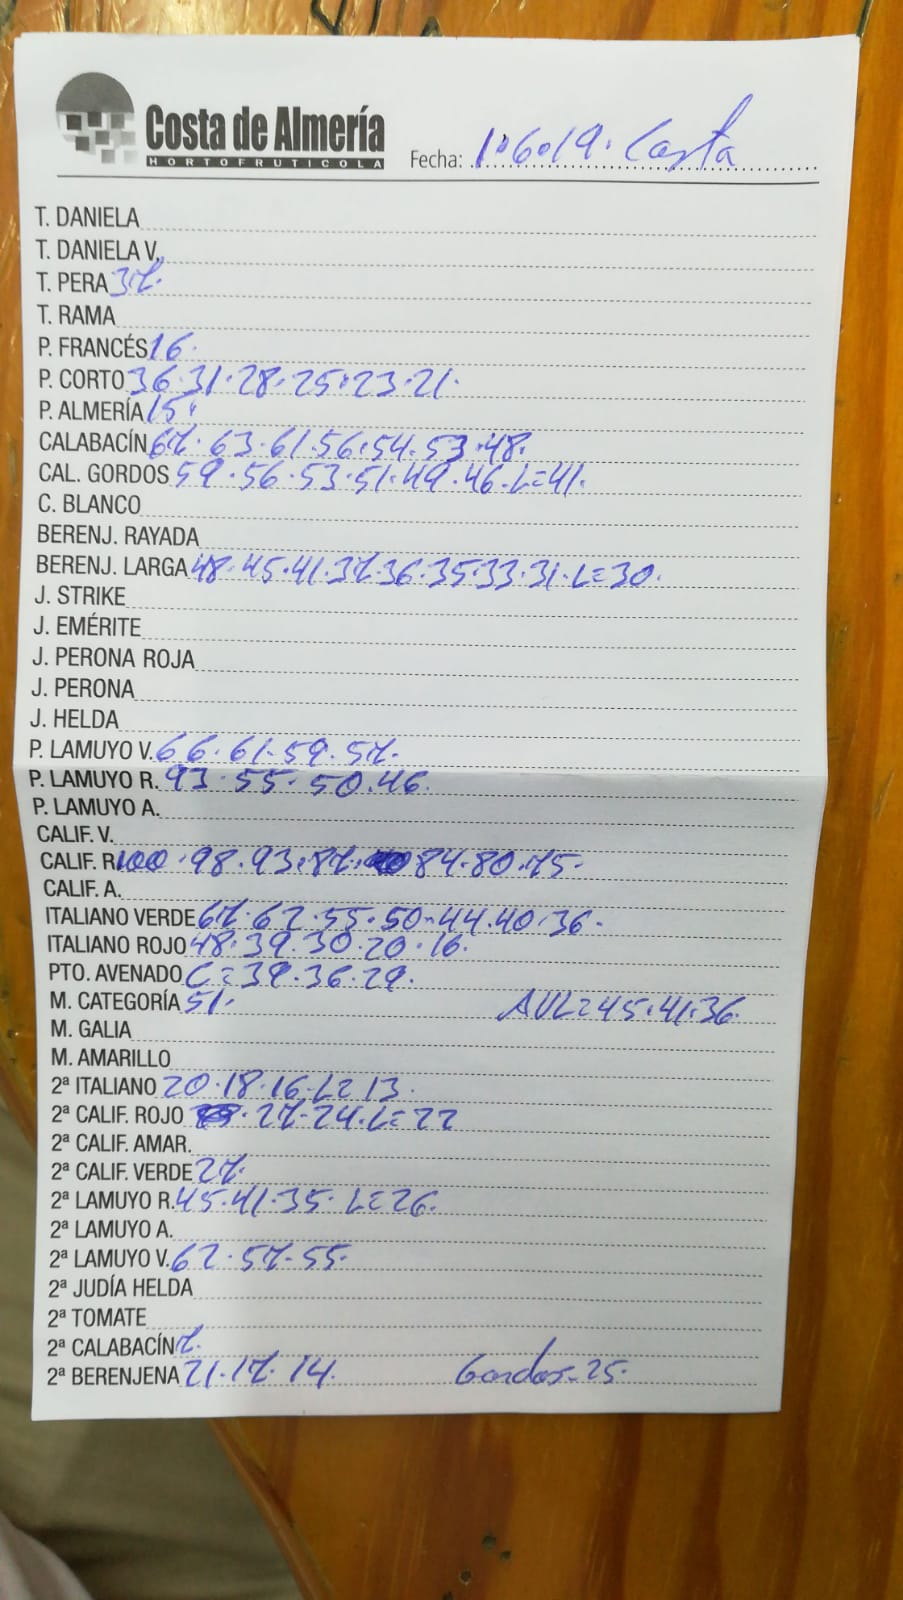 Costa de Almería
HORTOFRUTICOLA
Fecha: 1.6.19. Costa
T. DANIELA
T. DANIELA V.
T. PERA 37.
T. RAMA
P. FRANCÉS 16.
P. CORTO 36.31.28.25.23.21.
P. ALMERÍA 15.
CALABACÍN 67.63.61.56.54.53.48.
CAL. GORDOS 59.56.53.51.49.46.L=41.
C. BLANCO
BERENJ. RAYADA
BERENJ. LARGA 48.45.41.37.36.35.33.31.L=30.
J. STRIKE
J. EMÉRITE
J. PERONA ROJA
J. PERONA
J. HELDA
P. LAMUYO V. 66.61.59.57.
P. LAMUYO R. 93.55.50.46.
P. LAMUYO A.
CALIF. V.
CALIF. R. 100.98.93.87.84.80.75.
CALIF. A.
ITALIANO VERDE 67.62.55.50.44.40.36.
ITALIANO ROJO 48.39.30.20.16.
PTO. AVENADO C=39.36.29.
M. CATEGORÍA 51. AVL=45.41.36.
M. GALIA
M. AMARILLO
2ª ITALIANO 20.18.16.L=13.
2ª CALIF. ROJO 27.24.L=22
2ª CALIF. AMAR.
2ª CALIF. VERDE 27.
2ª LAMUYO R. 45.41.35.L=26.
2ª LAMUYO A.
2ª LAMUYO V. 62.57.55.
2ª JUDÍA HELDA
2ª TOMATE
2ª CALABACÍN 7.
2ª BERENJENA 21.17.14. Gordos=25.